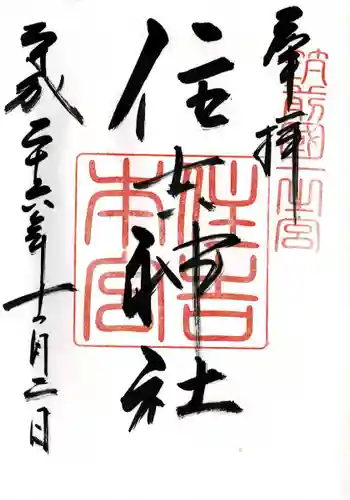 奉拝
筑前國一之宮
住吉神社
住吉本宮
平成二十六年十一月二日